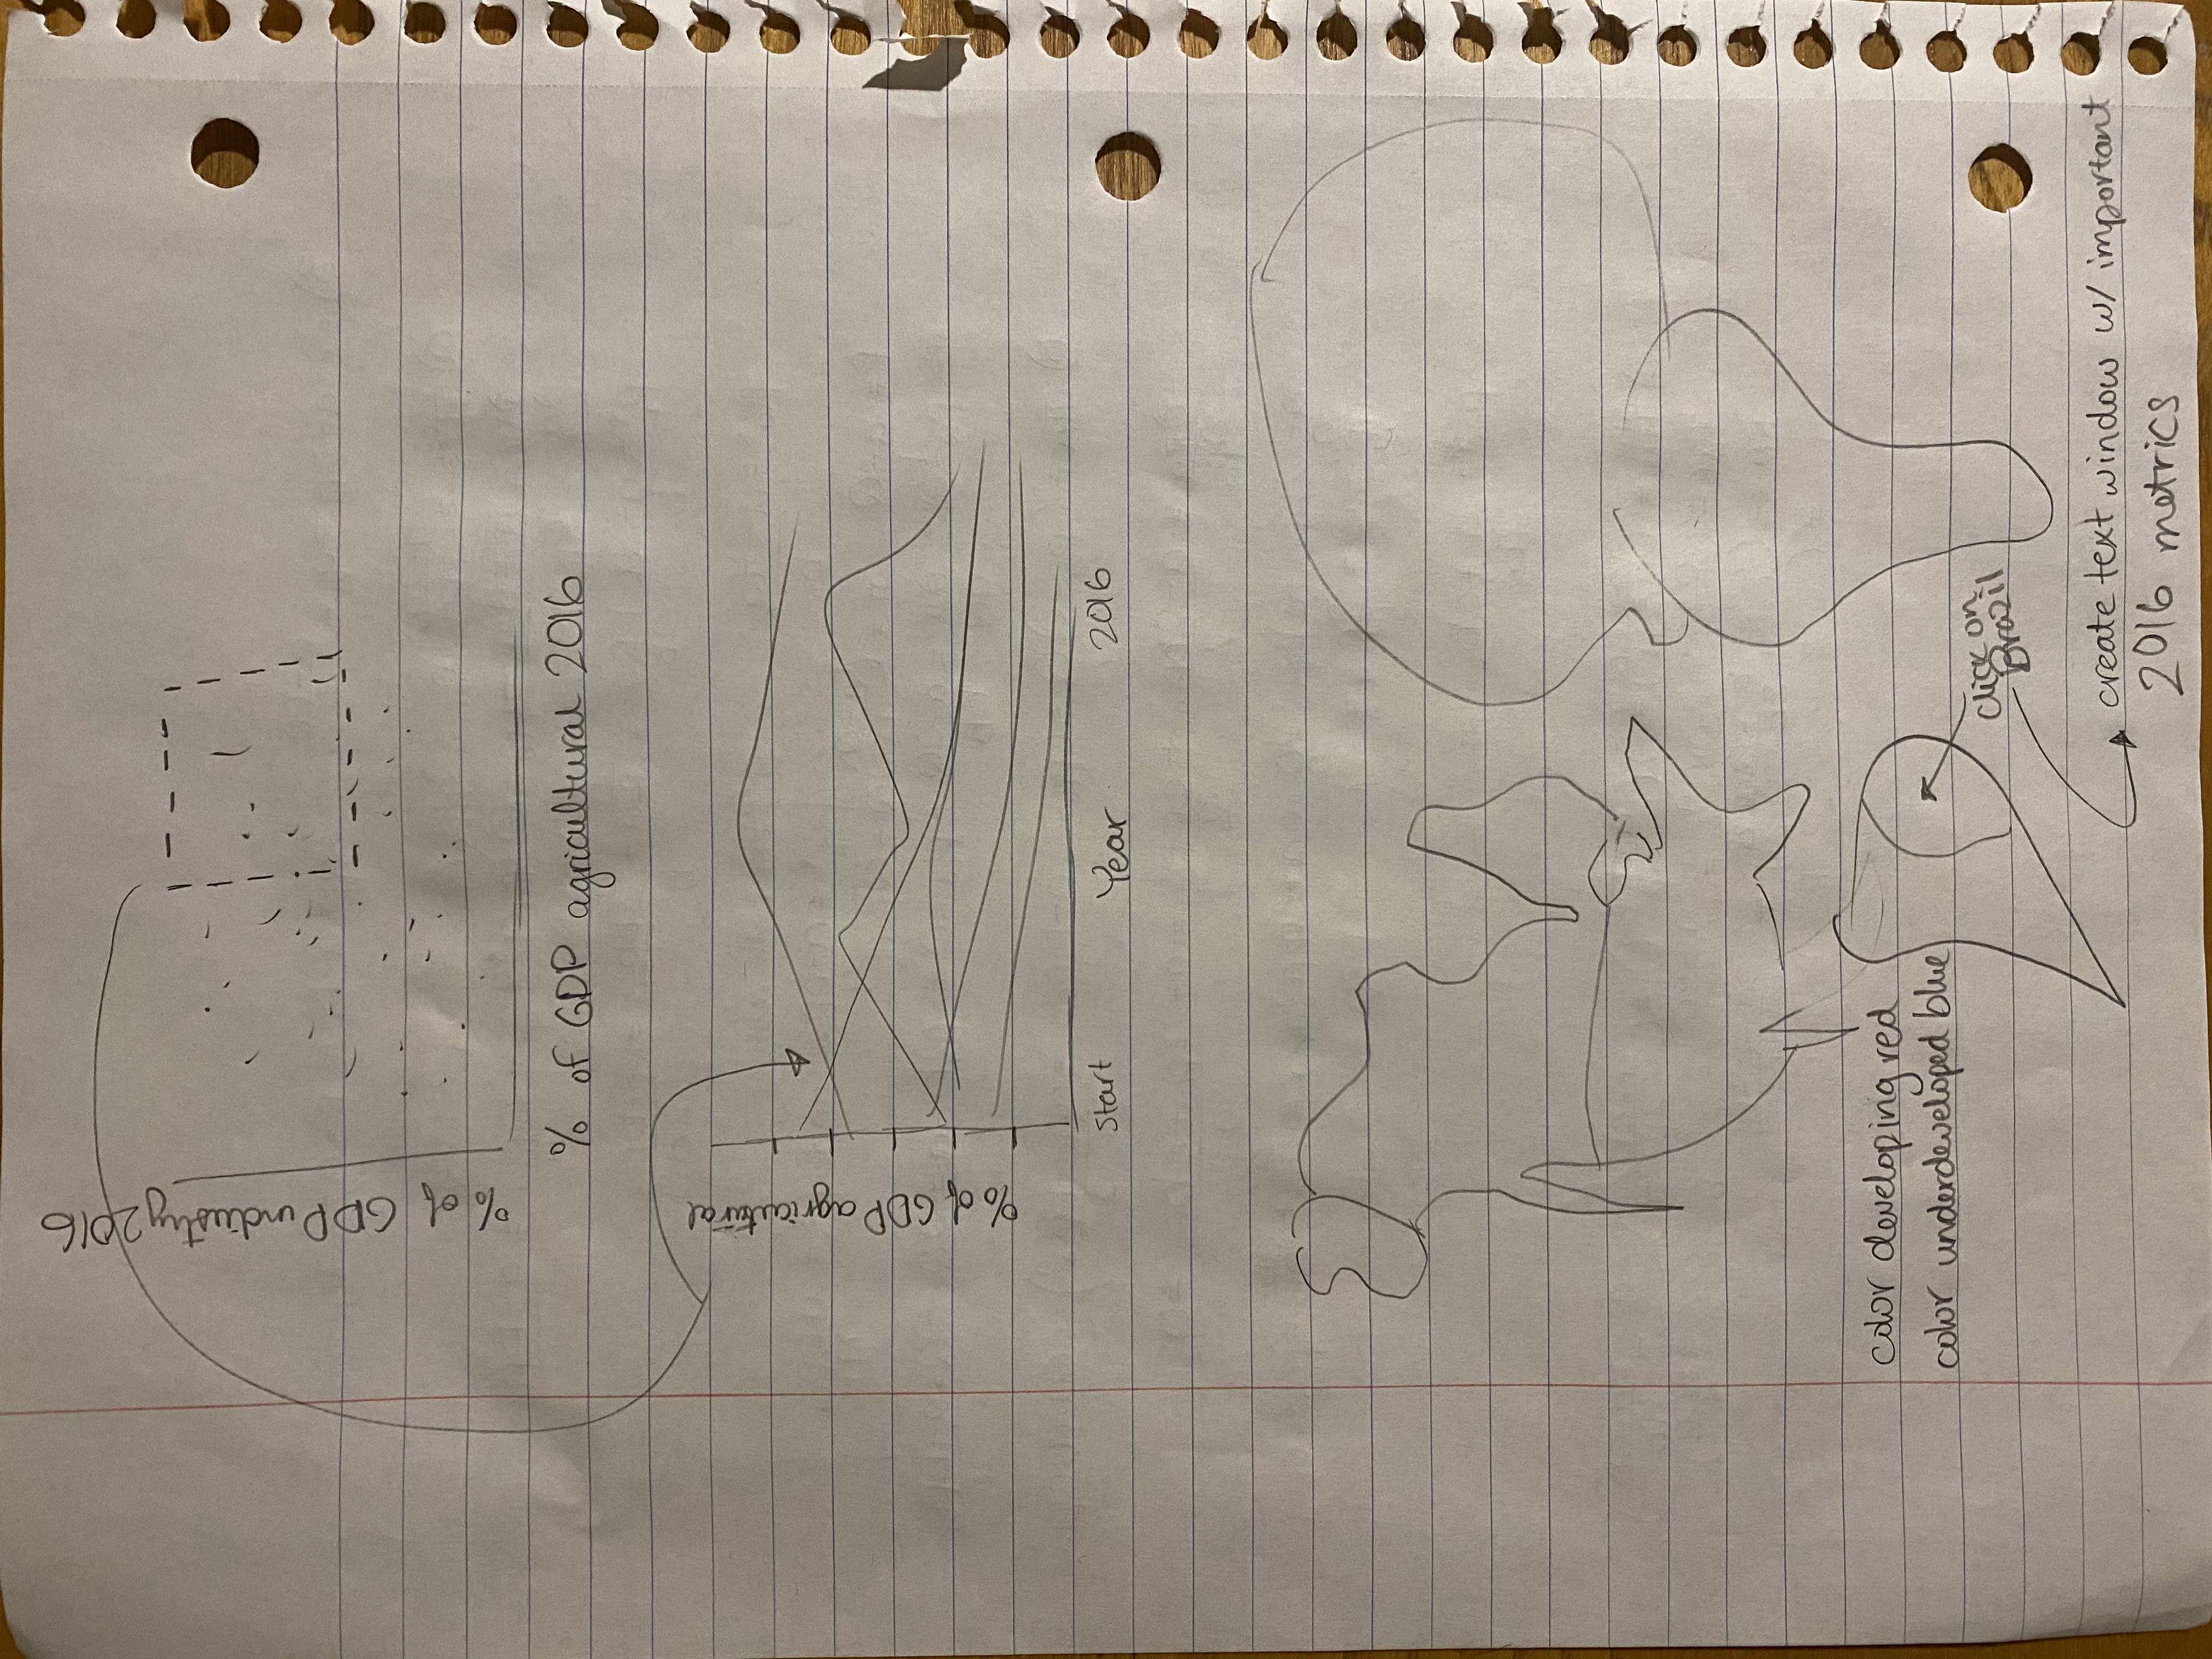 % of GDP industry 2016
% of GDP agricultural 2016
% of GDP agricultural
Start Year 2016
color developing red
color underdeveloped blue
click on
Brazil
create text window w/ important
2016 metrics